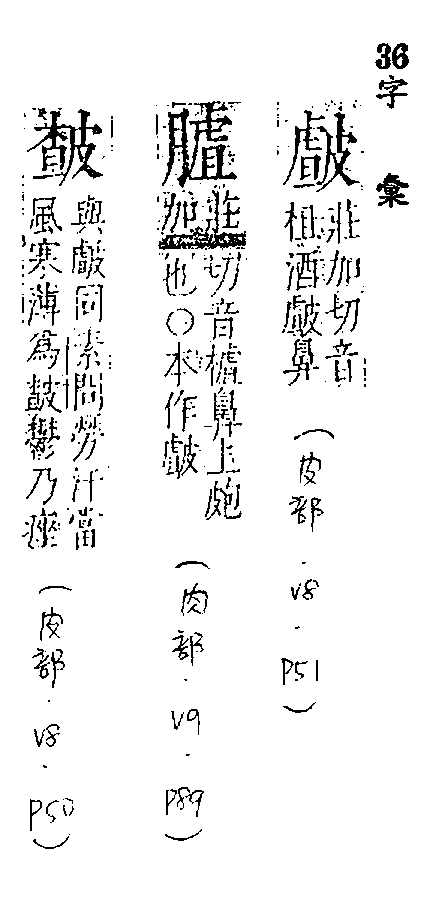 36字彙
皻
莊加切音
柤酒皻鼻
(皮部.V8.P51)
䐒
莊切音樝鼻上皰
加也○本作皻
(肉部.V9.P89)
皶
與皻同素問勞汗當
風寒薄爲皶鬱乃痤
(皮部.V8.P50)